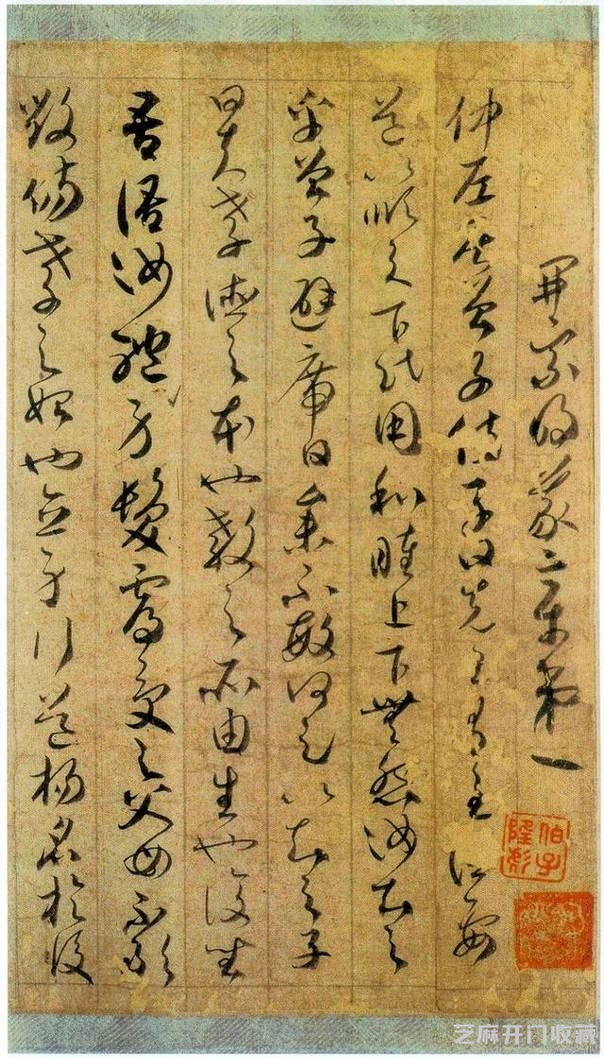 開宗明義章第一
仲尼居曾子侍子曰先王有至德要
道以順天下民用和睦上下無怨汝知之
乎曾子避席曰參不敏何足以知之子
曰夫孝德之本也教之所由生也復坐
吾語汝體身髮膚受之父母不敢
毀傷孝之始也立身行道揚名於後
芝麻开门收藏